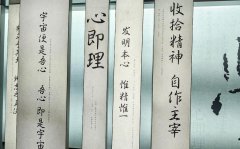 收拾精神 自作主宰
发明本心 惟精惟一
心即理
宇宙便是吾心 吾心即是宇宙